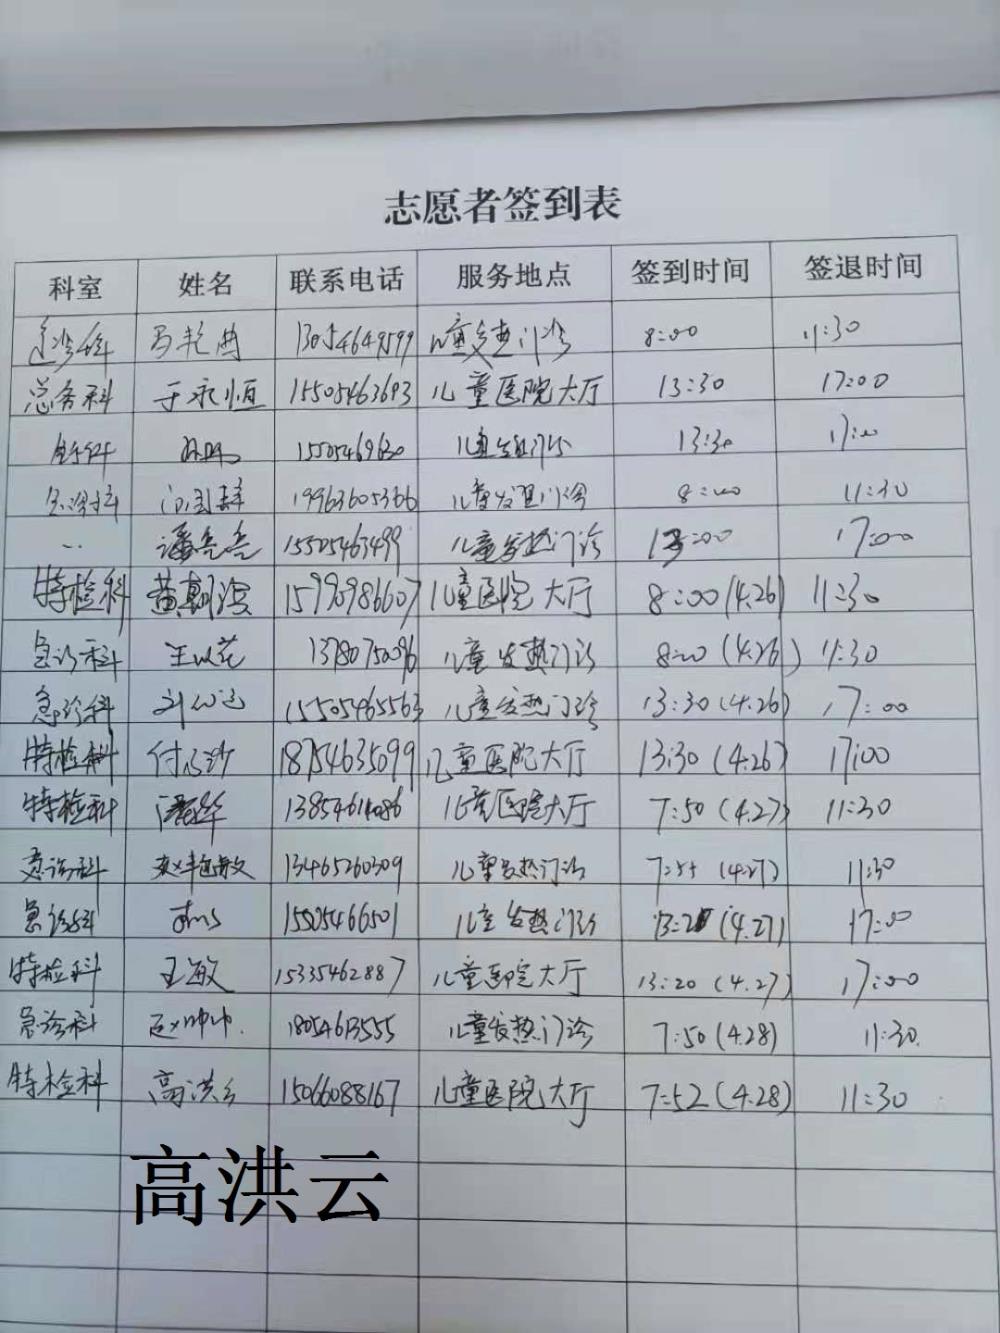 志愿者签到表
科室 姓名 联系电话 服务地点 签到时间 签退时间
13054649599 8:00 11:30
总务科 于永恒 15505463693 儿童医院大厅 13:30 17:00
13:30 17:00
急诊科 19963605366 儿童发热门诊 8:00 11:30
15505463499 儿童发热门诊 17:00
特检科 儿童医院大厅 8:00(4.26) 11:30
急诊科 王以花 儿童发热门诊 8:00(4.26) 11:30
急诊科 15505465563 儿童发热门诊 13:30(4.26) 17:00
特检科 18754635099 儿童医院大厅 13:30(4.26) 17:00
特检科 13854614086 儿童医院大厅 7:50(4.27) 11:30
急诊科 赵艳敏 13465260309 儿童发热门诊 7:55(4.27) 11:30
急诊科 15505466501 儿童发热门诊 (4.27) 17:00
特检科 王敏 15335462887 儿童医院大厅 13:20(4.27) 17:00
急诊科 赵帅帅 18054613555 儿童发热门诊 7:50(4.28) 11:30
特检科 高洪云 15066088167 儿童医院大厅 7:52(4.28) 11:30
高洪云